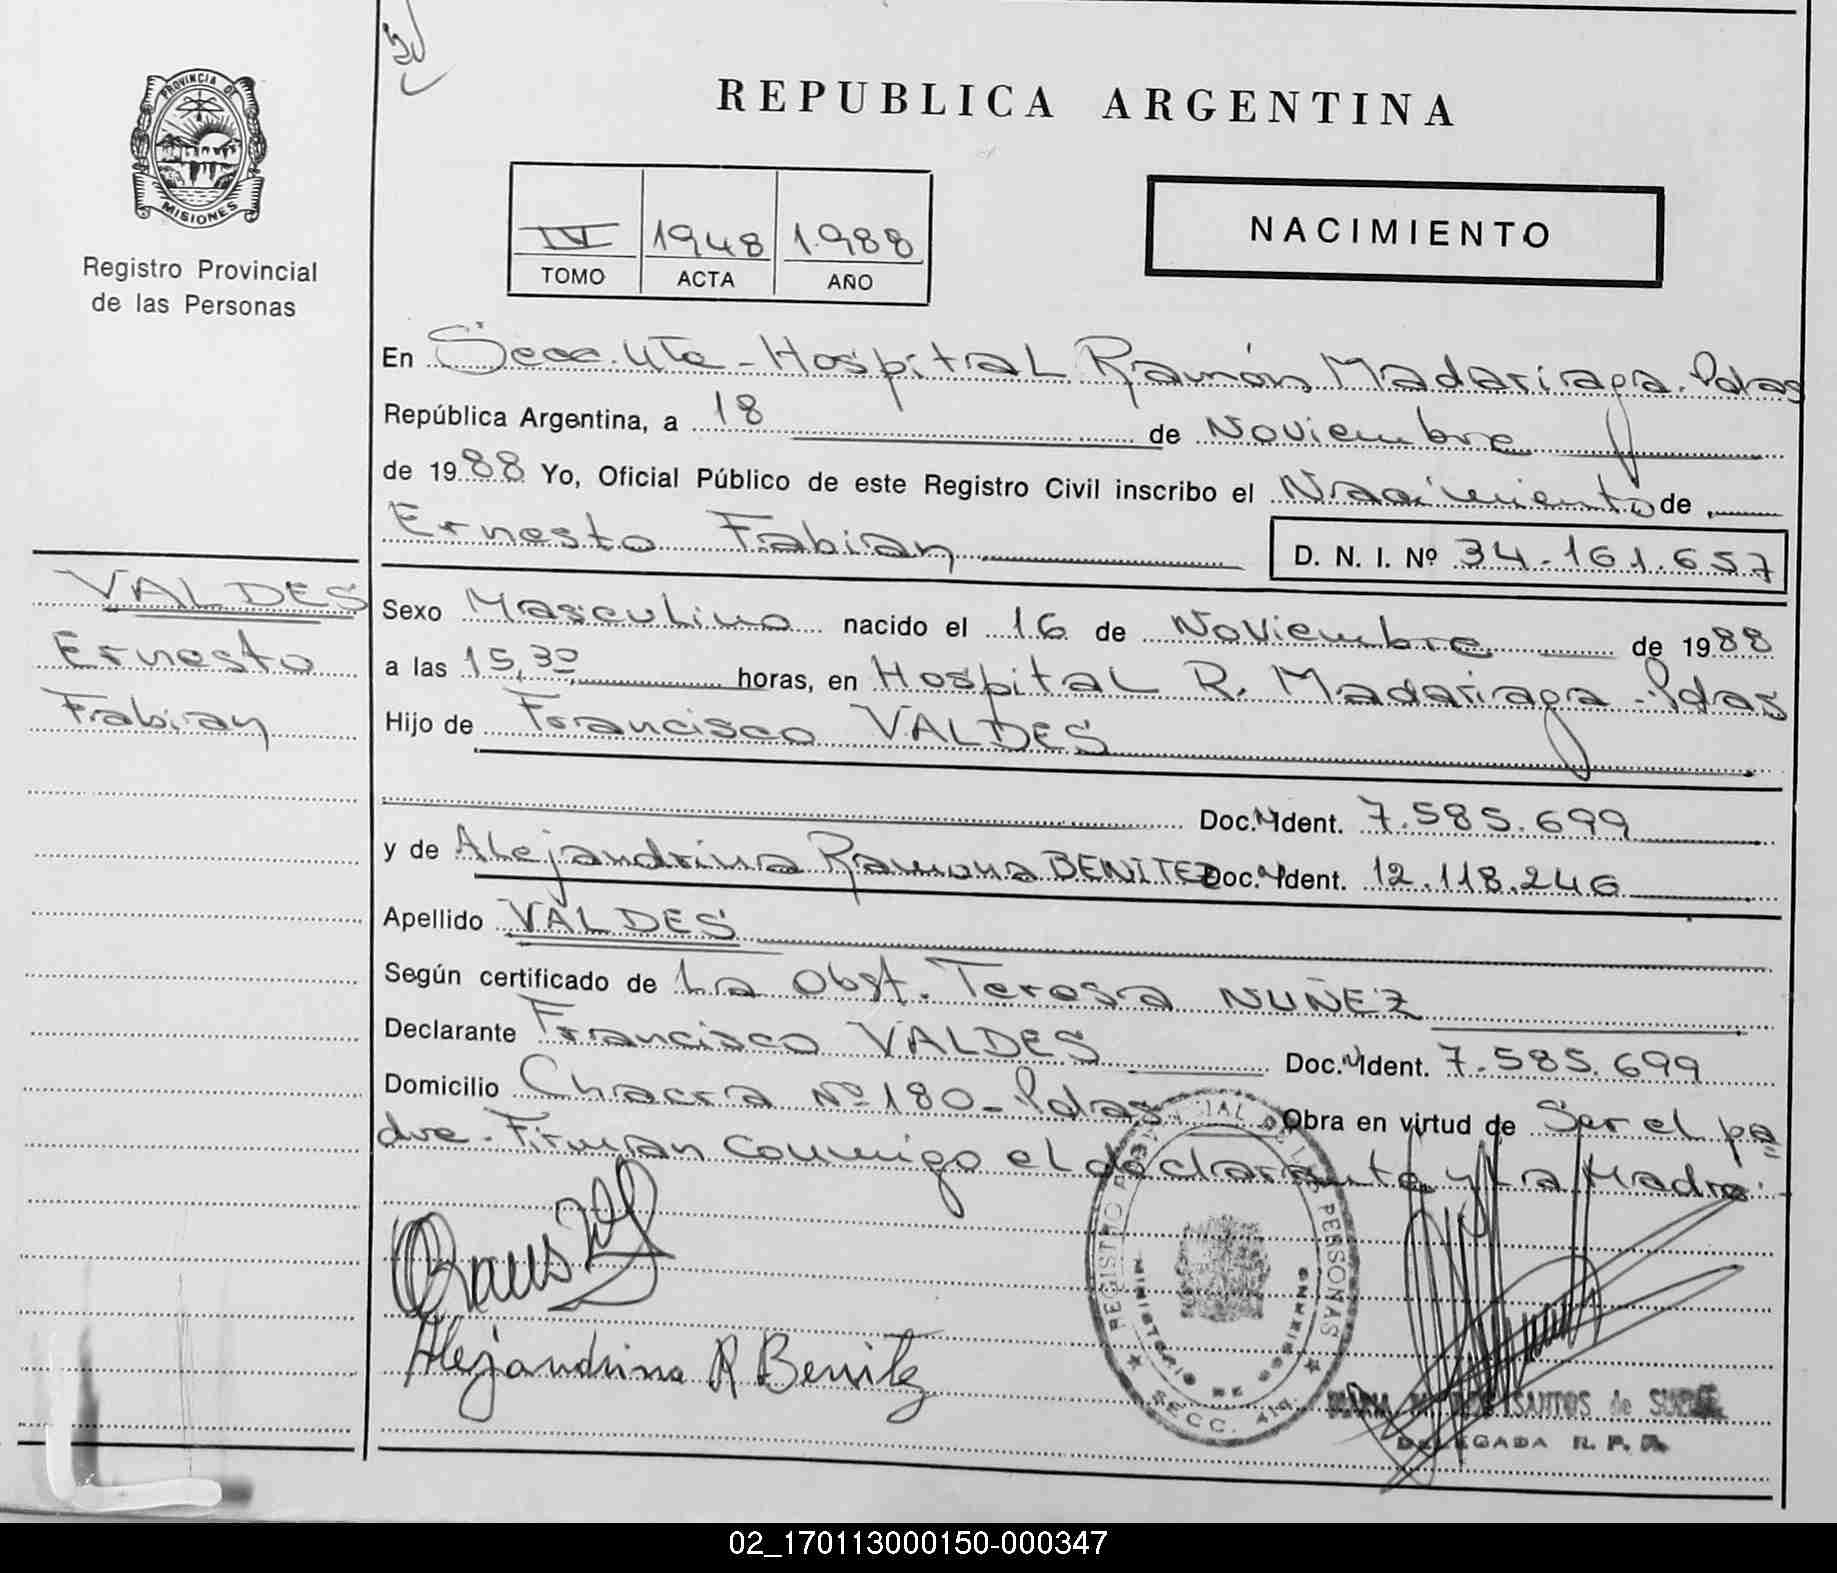 PROVINCIA DE
MISIONES
Registro Provincial
de las Personas
REPUBLICA ARGENTINA
IV 1948 1.988
TOMO ACTA AÑO
NACIMIENTO
En Secc. 4ta - Hospital Ramón Madariaga. Pdas
República Argentina, a 18 de Noviembre
de 1988 Yo, Oficial Público de este Registro Civil inscribo el Nacimiento de
Ernesto Fabian D. N. I. Nº 34.161.657
VALDES
Ernesto
Fabian
Sexo Masculino nacido el 16 de Noviembre de 1988
a las 15,30 horas, en Hospital R. Madariaga - Pdas
Hijo de Francisco VALDES
Doc. Ident. 7.585.699
y de Alejandrina Ramona BENITEZ Doc. Ident. 12.118.246
Apellido VALDES
Según certificado de La Obst. Teresa NUÑEZ
Declarante Francisco VALDES Doc. Ident. 7.585.699
Domicilio Chacra Nº 180 - Pdas Obra en virtud de Ser el pa
dre - Firman Conmigo el declarante y La Madre
Alejandrina R Benitez
REGISTRO PERSONAS
MINISTERIO DE GOBIERNO
SECC. 4ta.
SANTOS de
DELEGADA R. P. P.
02_170113000150-000347